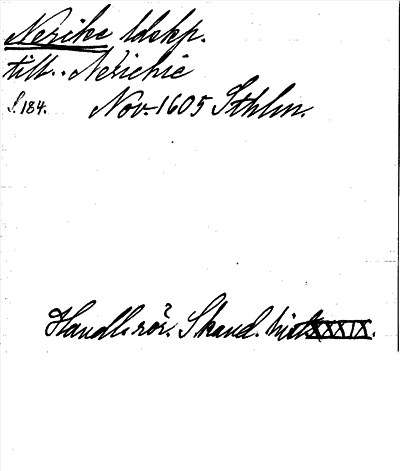 Nerike ldskp.
till.. Nerichie
S. 184. Nov. 1605 Sthlm.
Handl. rör. Skand. hist. XXXIX.